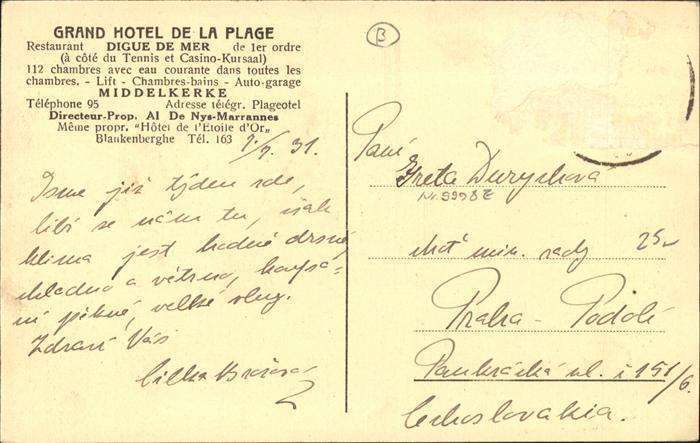 GRAND HOTEL DE LA PLAGE
Restaurant DIGUE DE MER de 1er ordre
(à côté du Tennis et Casino-Kursaal)
112 chambres avec eau courante dans toutes les
chambres. - Lift - Chambres-bains - Auto-garage
MIDDELKERKE
Téléphone 95 Adresse télégr. Plageotel
Directeur-Prop. Al De Nys-Marrannes
Même propr. "Hôtel de l'Etoile d'Or"
Blankenberghe Tél. 163
B
7. 31.
Jsme již týden zde,
líbí se nám tu, však
klima jest hodně drsné
chladno a větrno, koupá-
ní pěkné, velké vlny.
Zdraví Vás
Cilka
Paní
Greta Durychova
Nr. 5998E
choť min. rady
25,-
Praha - Podolí
Pankrácká ul. č 151/6.
Čechoslovakia.